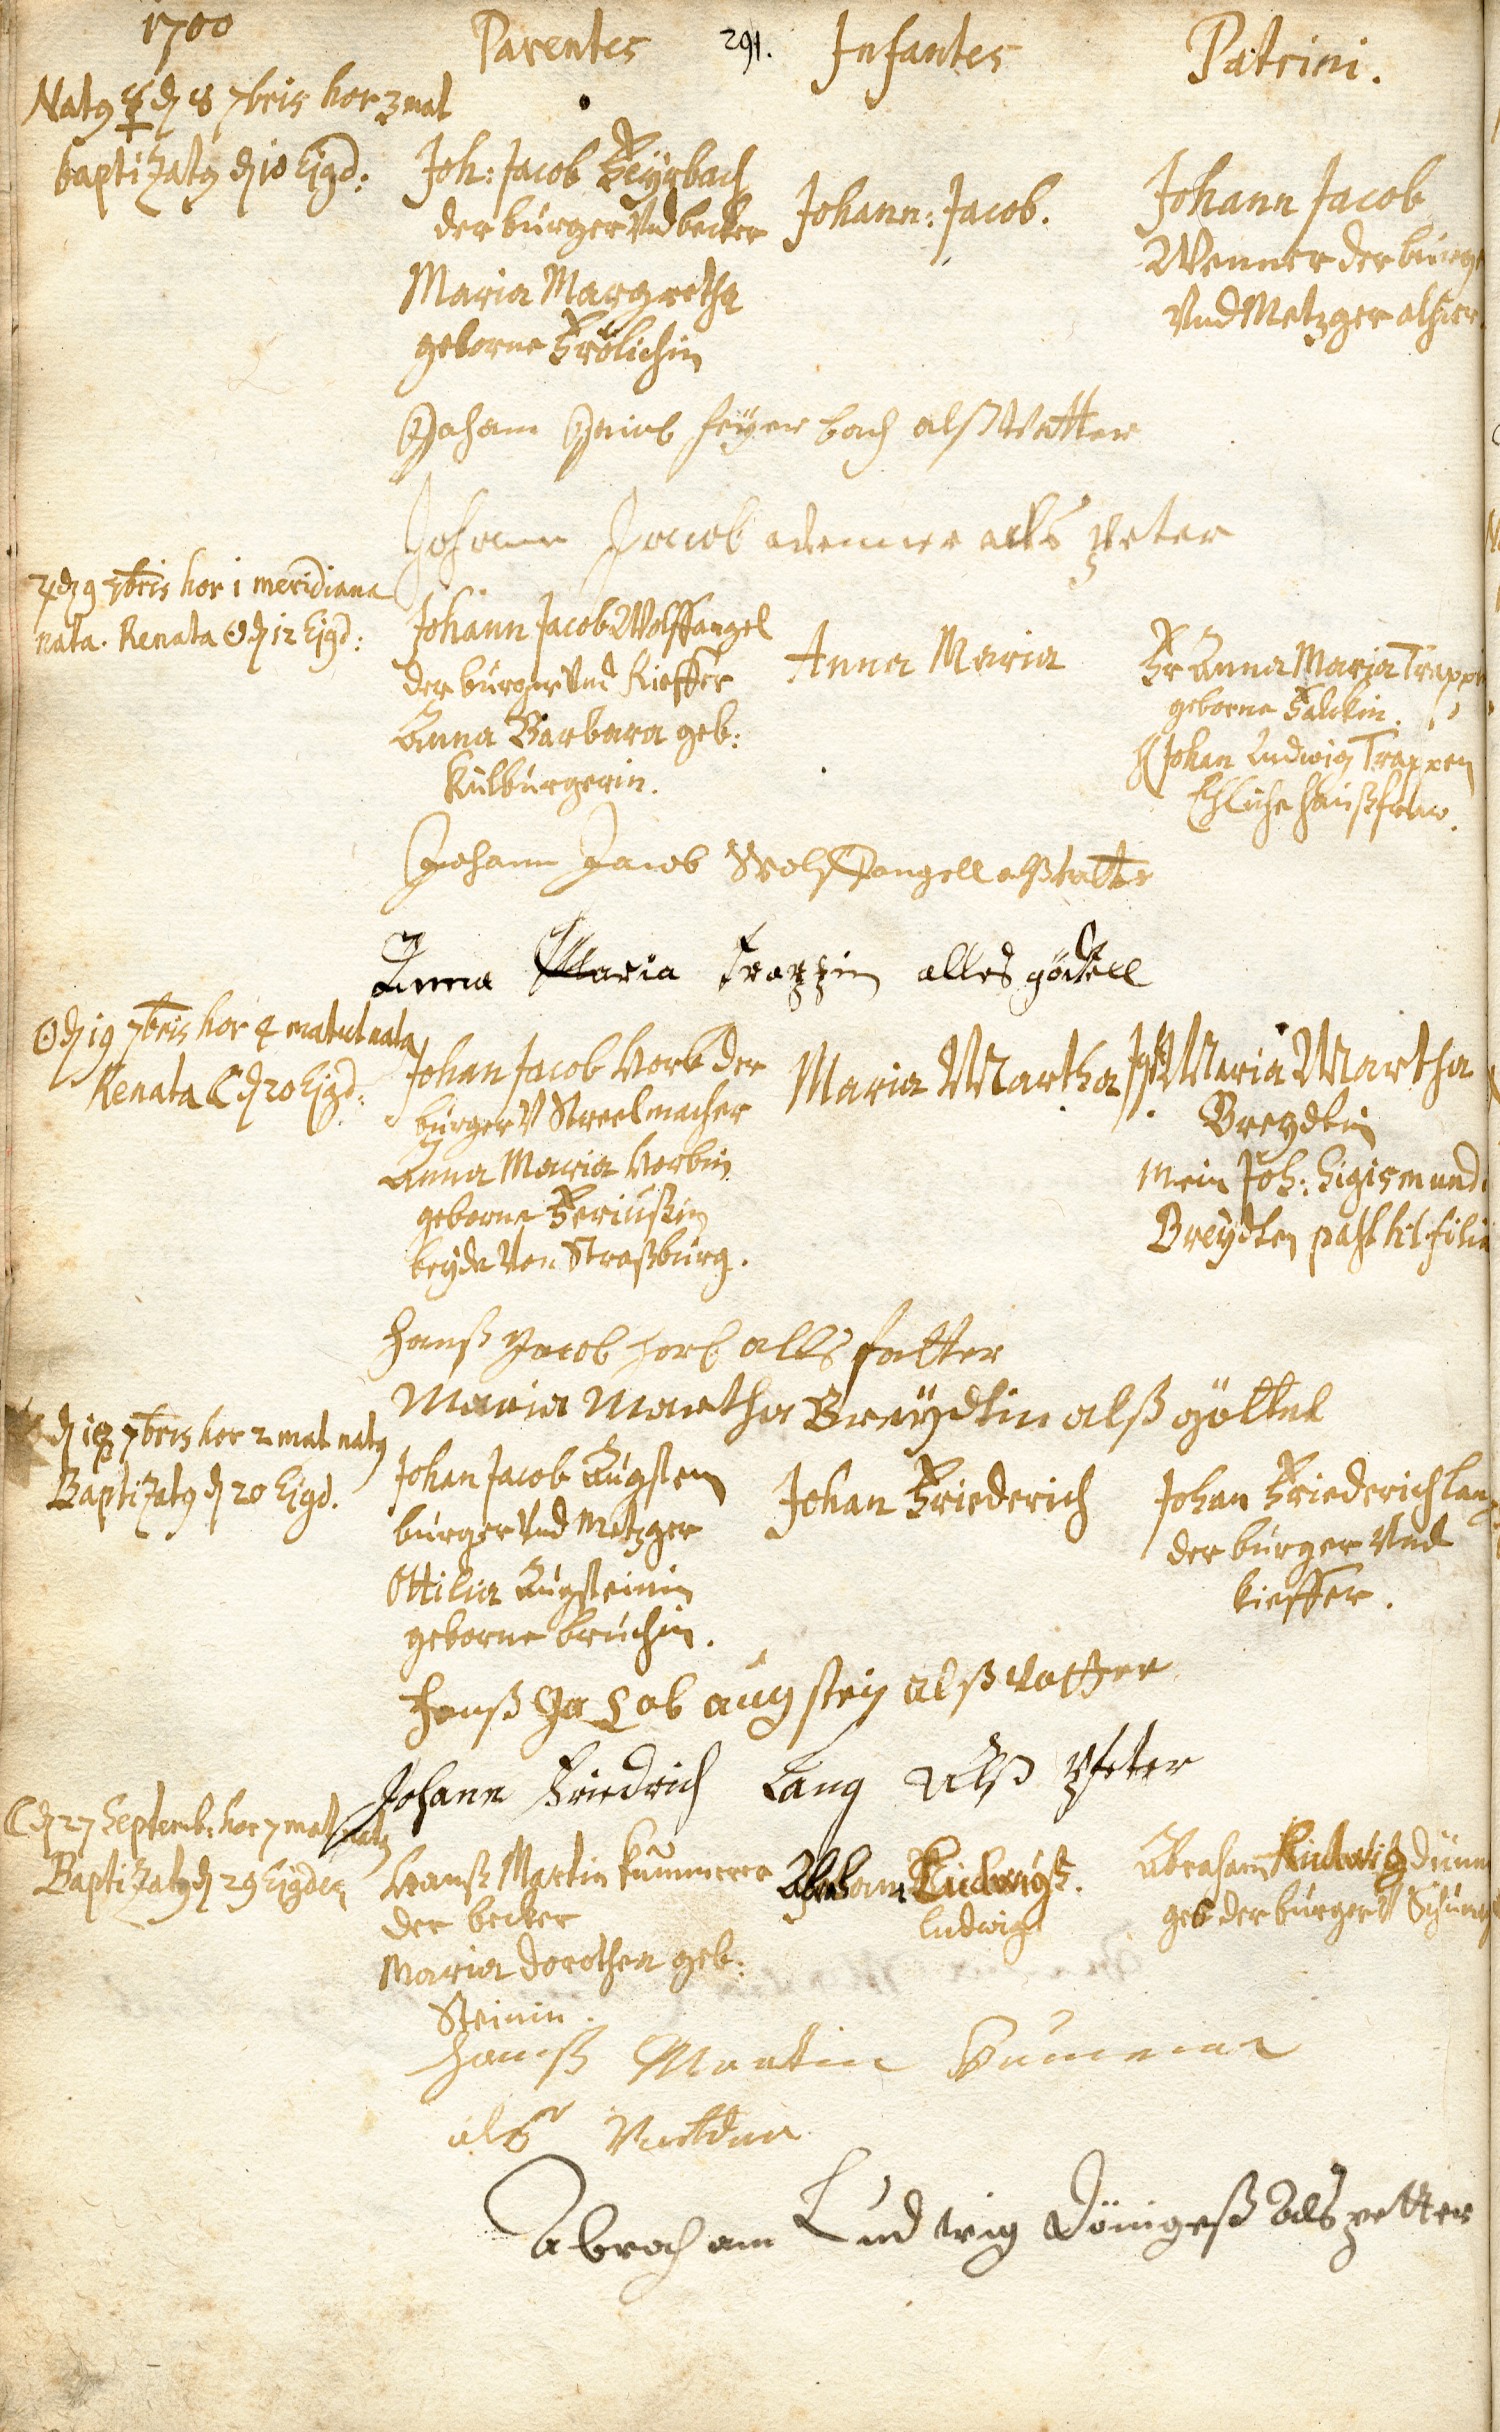 1700
Parentes 291. Infantes Patrini.
Natq ☿ d 8 7bris hor 3 mat
baptizatq d 10 Ejusd:
Joh: Jacob Feyrbach
der burger Vnd becker
Maria Margretha
geborne Frölichin
Johann: Jacob.
Johann Jacob
Wenner der burge
Vnd Metzger alhier
Joham Jacob feyer bach alß Vatter
Johann Jacob wenner als pfeter
♃ d 9 7bris hor 1 meridiana
nata. Renata ☉ d 12 Ejusd:
Johann Jacob Wolffangel
der burger Vnd Kieffer
Anna Barbara geb:
Külburgerin.
Anna Maria
Fr Anna Maria Trapp
geborne Falckin.
H Johan Ludwig Trappen
Ehliche haußfraw.
Johann Jacob Wolffangell alß vatter
Anna Maria Trappin alles göttell
☉ d 19 7bris hor 4 matut nata
Renata ☾ d 20 Ejusd:
Johan Jacob Horb der
burger V Streelmacher
Anna Maria Horbin
geborne
beyde Von Straßburg.
Maria Martha
Jfr Maria Martha
Breydtin
Mein Joh: Sigismund
Breydten past h: l: filia
hanß Jacob horb alls fatter
Maria Martha Breydtin alß göttel
d 18 7bris hor 2 mat natq
Baptizatq d 20 Ejusd.
Johan Jacob Augstein
burger Vnd Metzger
Ottilia Augsteinin
geborne bruchin.
Johan Friederich
Johan Friederich Lang
der burger Vnd
kieffer.
hanß Jacob augstein alß vatter
Johann Friedrich Lang Alß Pfeter
☾ d 27 Septemb: hor 7 mat natq
Baptizatq d 29 Ejusdem
Hanß Martin Kummerer
der becker
Maria Dorothea geb:
Steinin.
Abraham Ludwig.
ludwig
Abraham Ludwig
der burger V
hanß Martin Kummerer
als Vatter
Abraham Ludwig Döningeß als petter